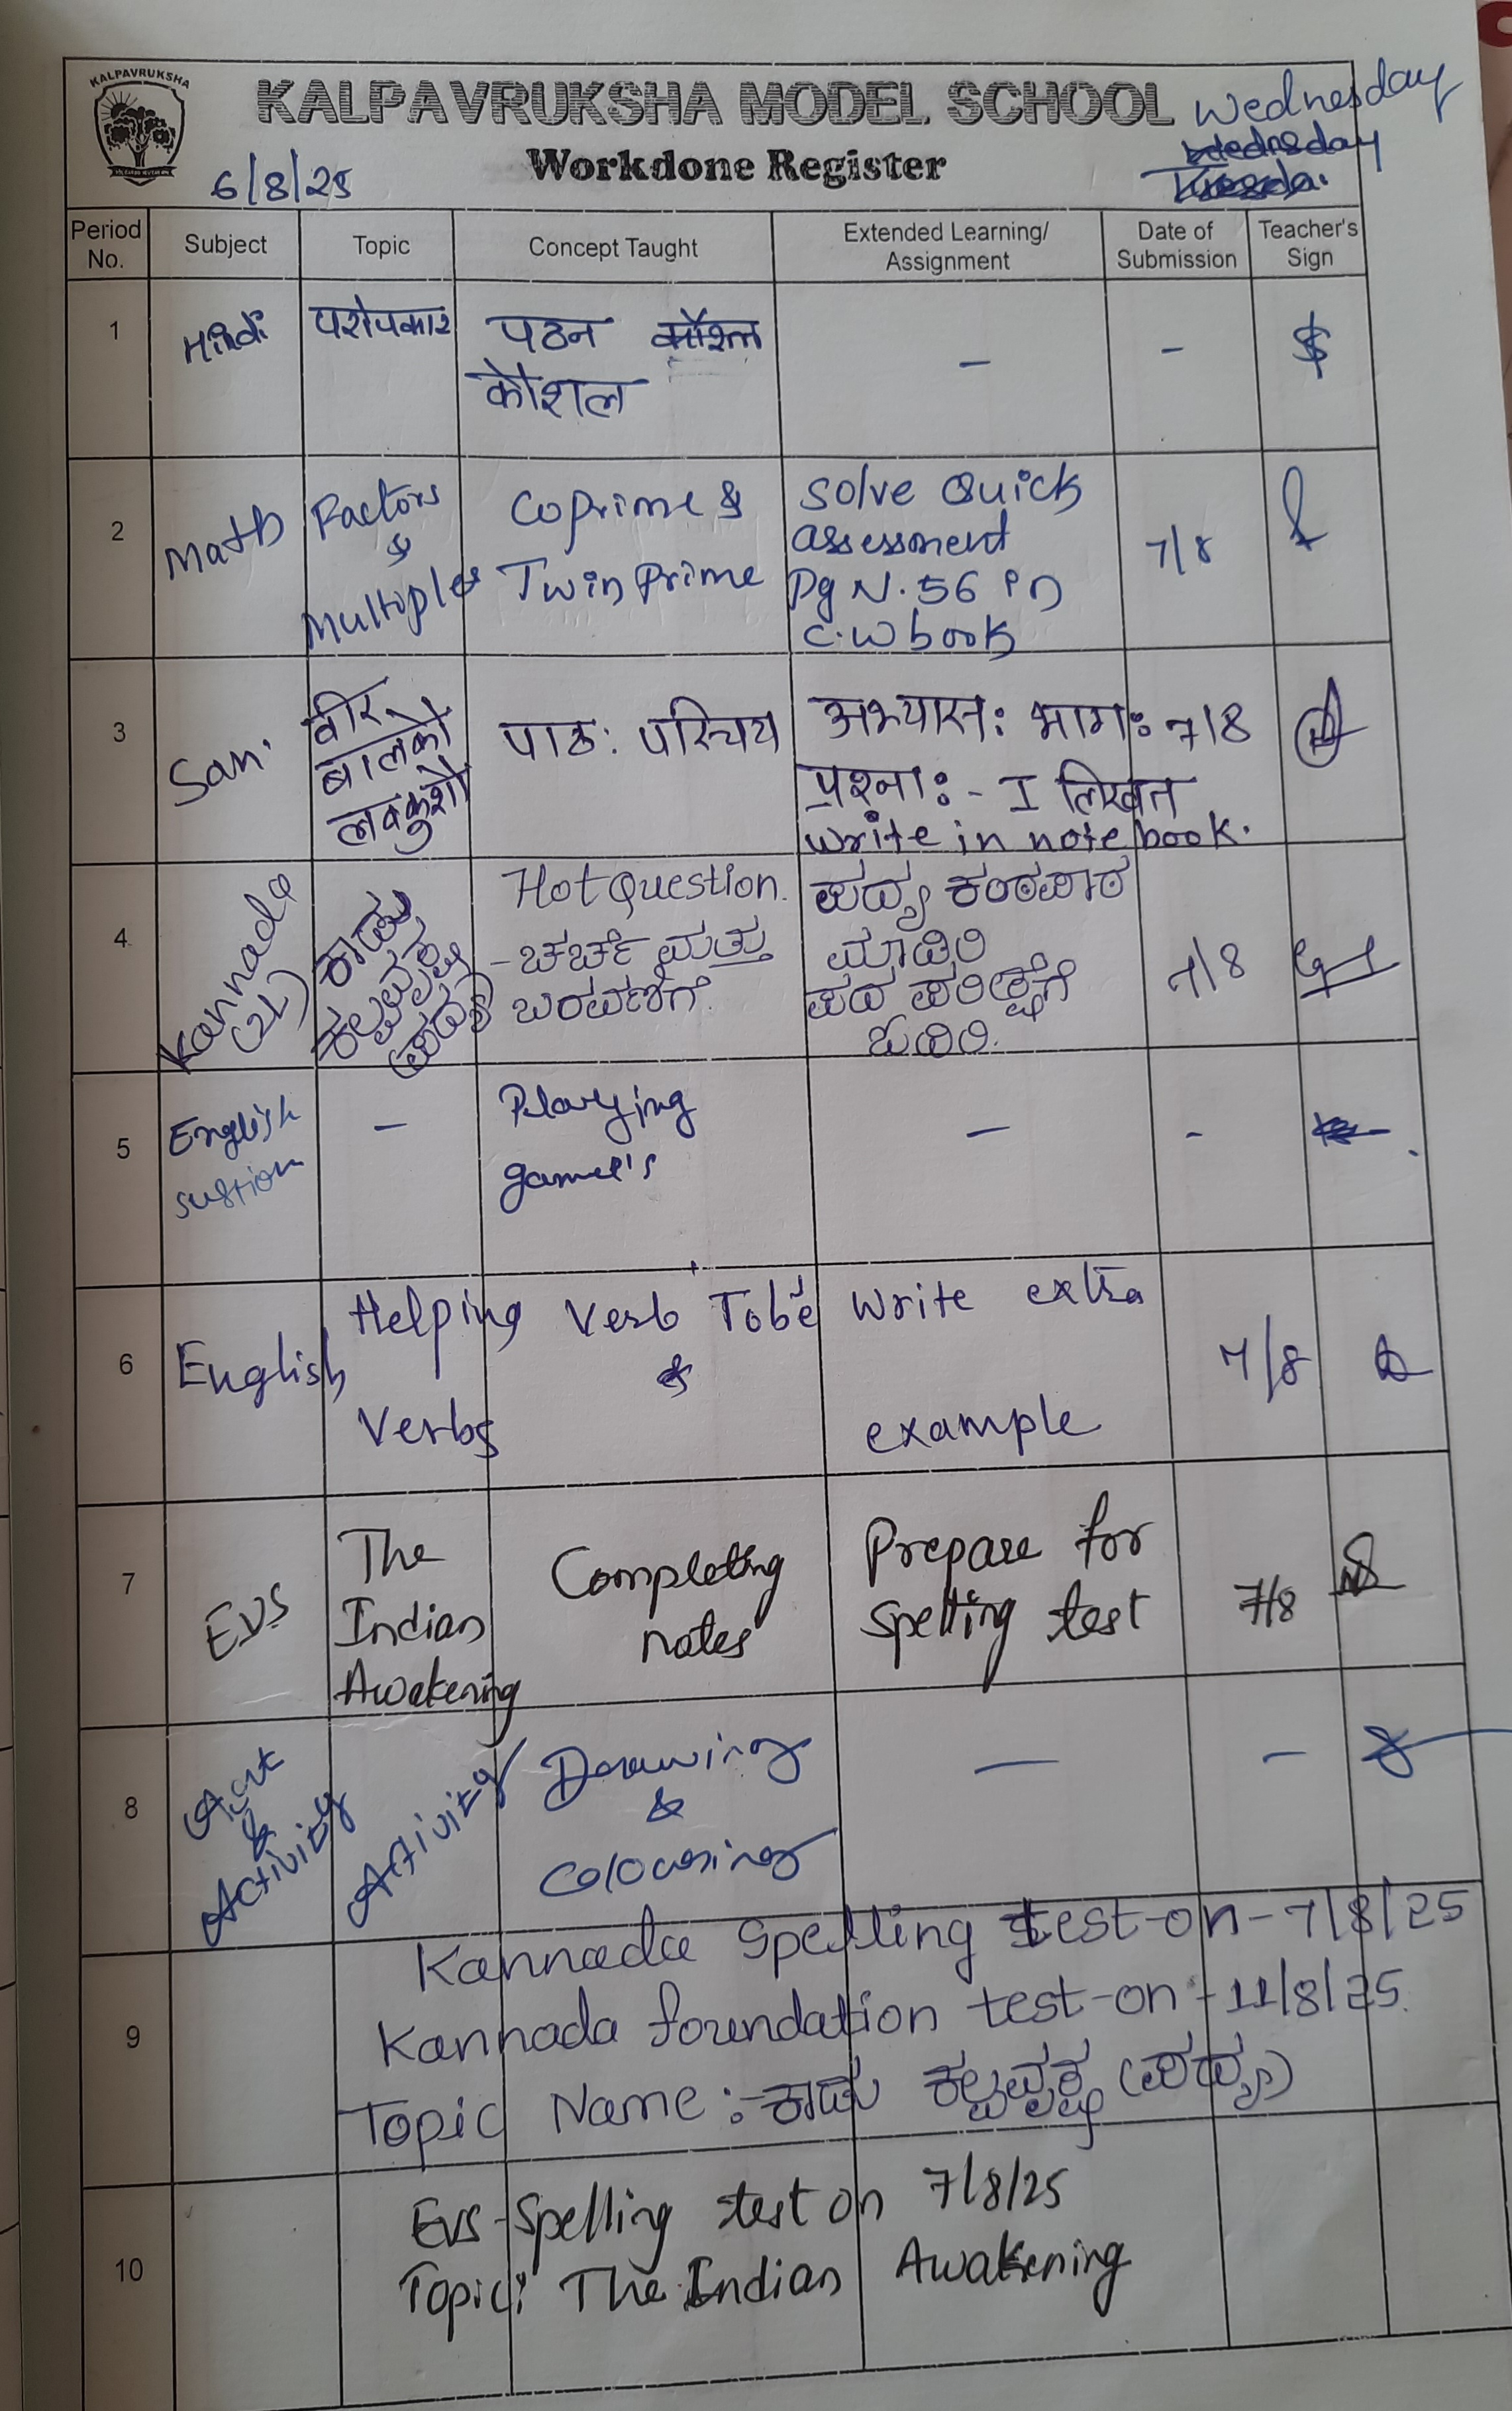 KALPAVRUKSHA
KALPAVRUKSHA MODEL SCHOOL
Wednesday
Workdone Register
6/8/25
Period No.
Subject
Topic
Concept Taught
Extended Learning/
Assignment
Date of
Submission
Teacher's
Sign
1
Hindi
परोपकार
पठन
कौशल
-
-
2
Math
Factors
&
Multiples
Coprime &
Twin Prime
Solve Quick
assessment
Pg N. 56 in
C.W book
7/8
3
San.
वीर
बालकौ
लवकुशौ
पाठ: परिचय
अभ्यास: भाग:
प्रश्ना: - I लिखत
write in note book.
7/8
4
Kannada
(2L)
ಕಾಡು
ಕಲ್ಪವೃಕ್ಷ
(ಪದ್ಯ)
Hot Question.
- ಚರ್ಚೆ ಮತ್ತು
ಬರವಣಿಗೆ.
ಪದ್ಯ ಕಂಠಪಾಠ
ಮಾಡಿರಿ
ಪದ ಪರೀಕ್ಷೆಗೆ
ಓದಿರಿ.
7/8
5
English
-
Playing
game's
-
-
6
English
Helping
Verbs
Verb 'Tobe'
Write extra
example
7/8
7
EVS
The
Indian
Awakening
Completing
notes
Prepare for
spelling test
7/8
8
Art
&
Activity
Activity
Drawing
&
Colouring
-
-
9
Kannada Spelling test-on-7/8/25
Kannada foundation test-on-11/8/25.
Topic Name:-ಕಾಡು ಕಲ್ಪವೃಕ್ಷ (ಪದ್ಯ)
10
EVS-Spelling test on 7/8/25
Topic: The Indian Awakening